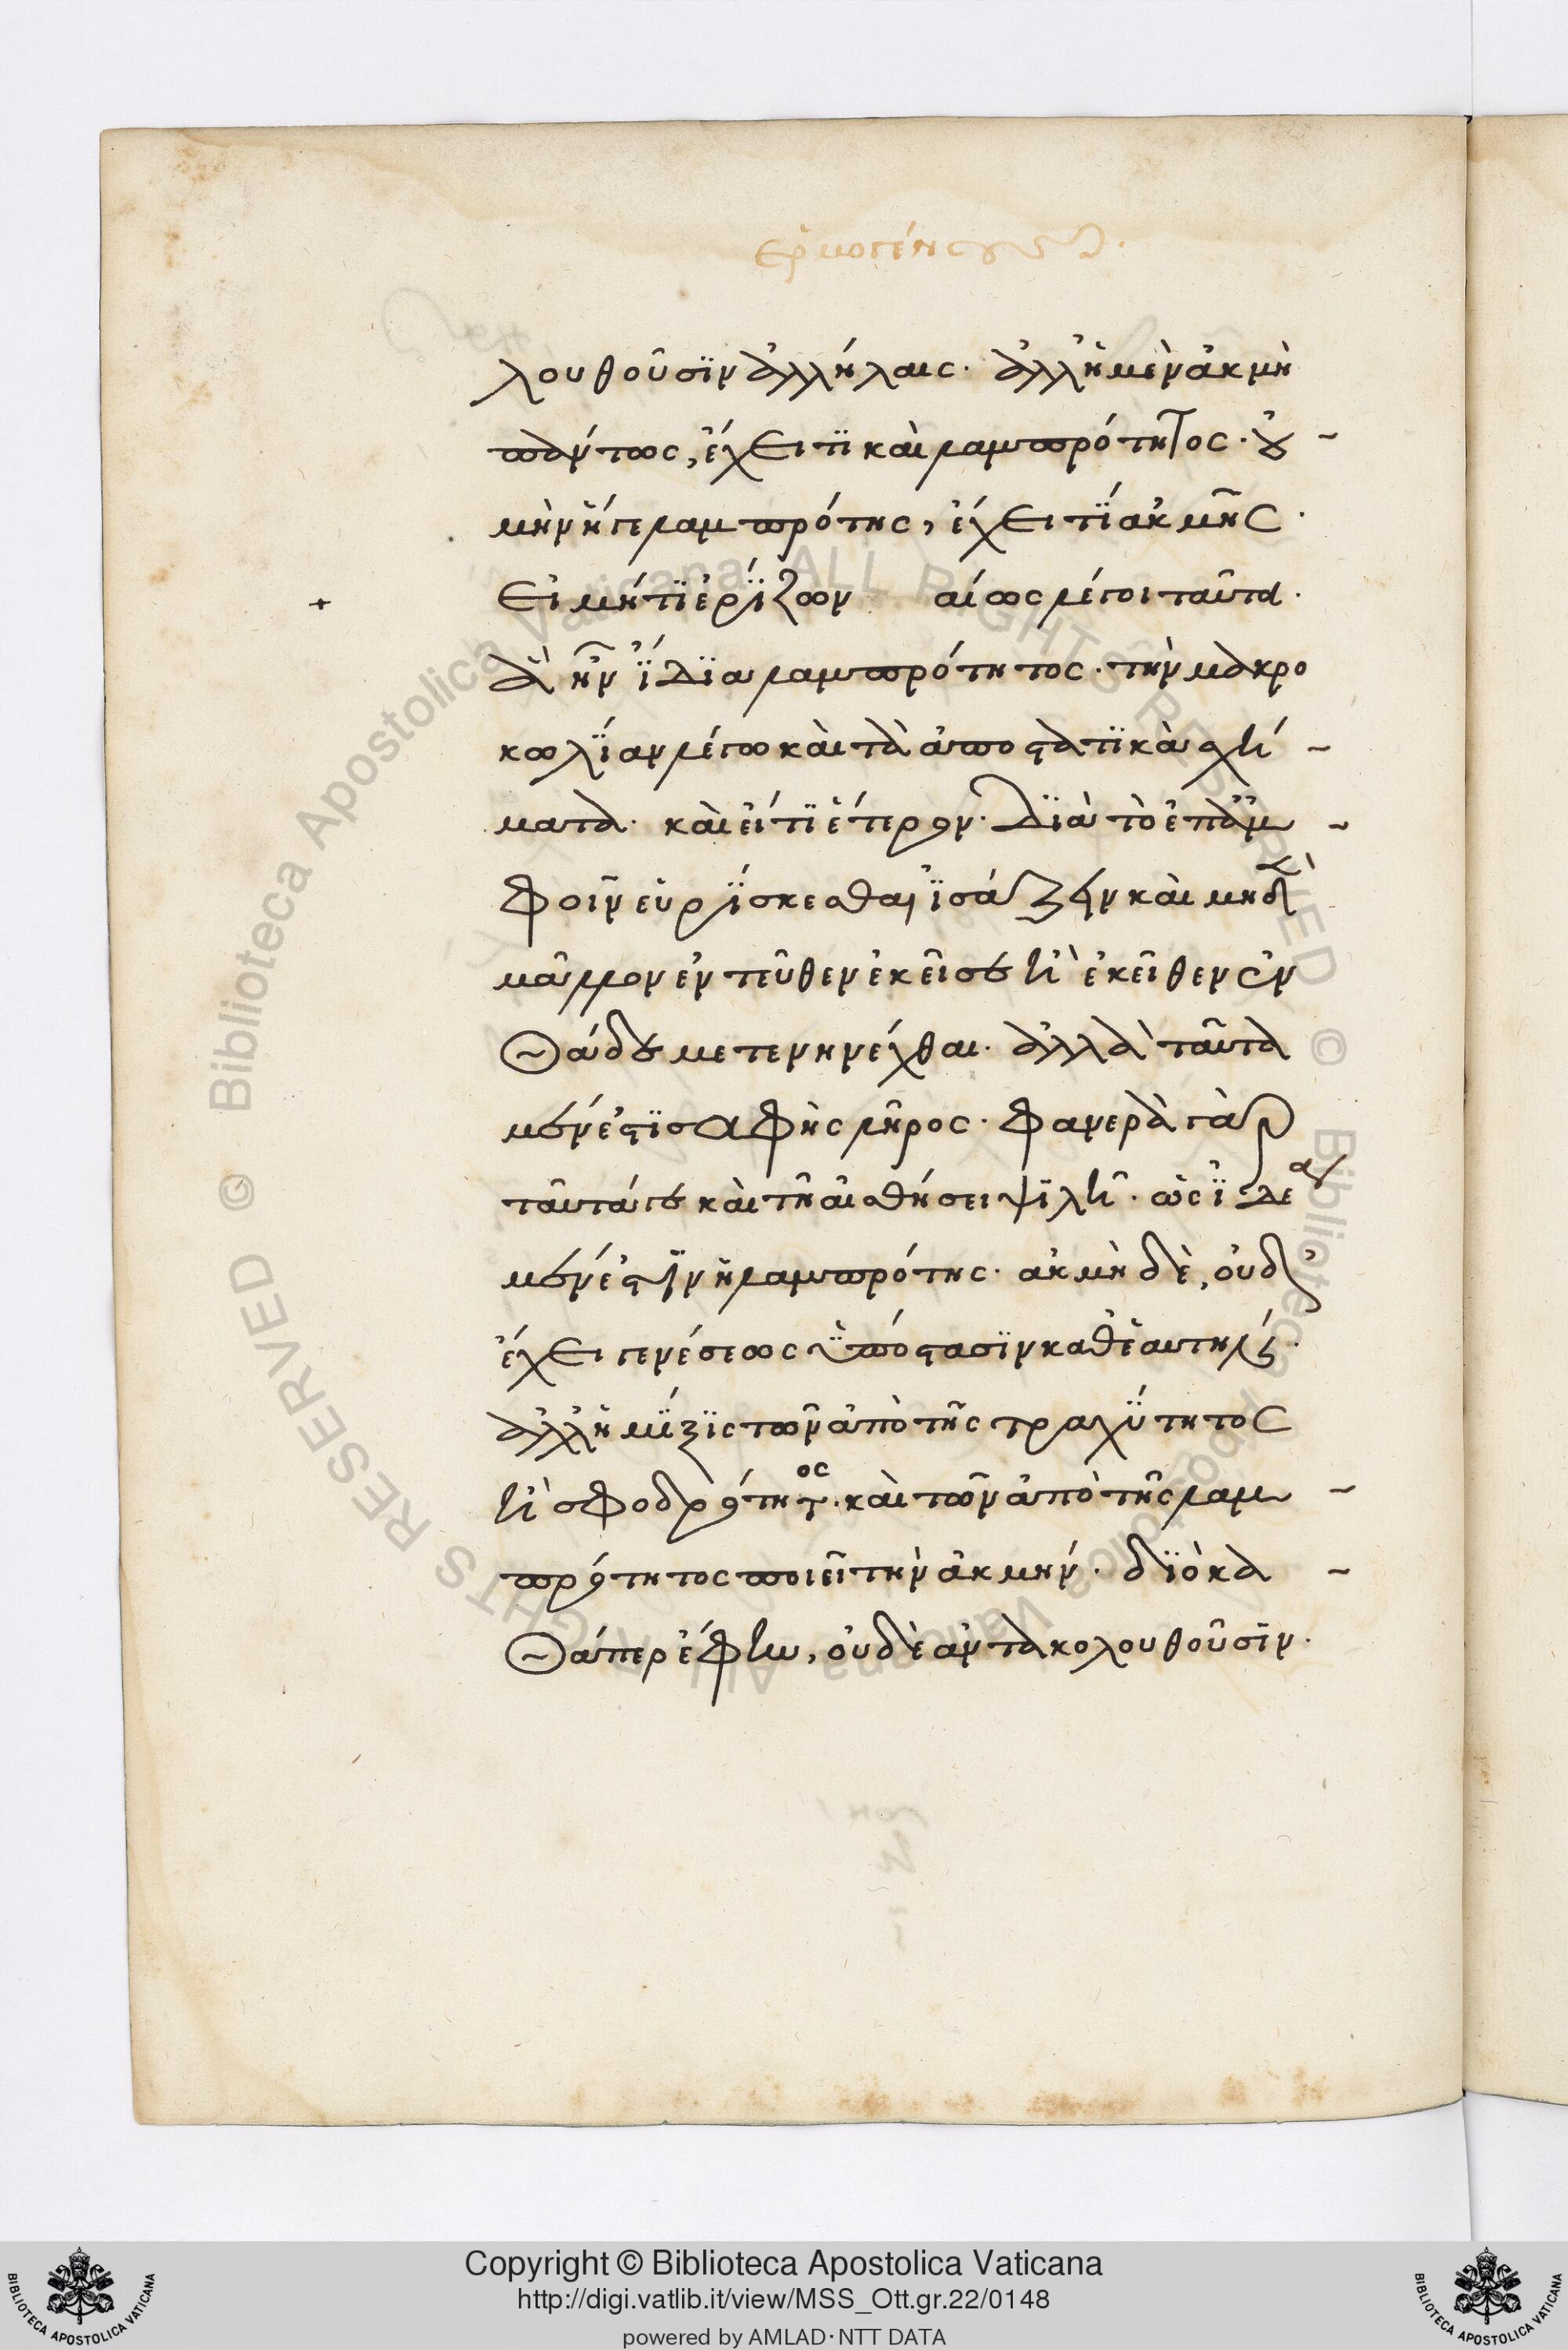 λουθοῦσϊν ἀλλήλαις· ἀλλ' ἡ μὲν ἀκμὴ
πάντως, ἔχει τϊ καὶ λαμπρότητος· οὐ
μὴν ἥγε λαμπρότης, ἔχει τϊ ἀκμῆς·
Εἰ μή τϊ ἐρίζων αἴως λέγοι ταῦτα·
ἃ ἦν ἴδϊα λαμπρότητος· τὴν μακρο
κωλϊαν λέγω καὶ τὰ ἀποστατϊκὰ σχή
ματα· καὶ εἴ τϊ ἕτερον· Δϊὰ τὸ ἐπ' ἀμ
φοῖν εὑρίσκεσθαι ἰσάζειν καὶ μηδὲ
μᾶλλον ἐντεῦθεν ἐκεῖσε ἢ ἐκεῖθεν ἐν
θάδε μετενηνέχθαι· ἀλλὰ ταῦτα
μέν ἐστϊ σαφὴς λῆρος· Φανερὰ γὰρ
ταῦτά γε καὶ τῆ αἰσθήσει ψϊλῆ· ὡς ἰδέα
μέν ἐστϊν ἡ λαμπρότης· ἀκμὴ δὲ, οὐδ'
ἔχει γενέσεως ὑπόστασϊν καθ' ἑαυτήν·
ἀλλ' ἡ μίξϊς τῶν ἀπὸ τῆς τραχύτητος
ἢ σφοδρότητος· καὶ τῶν ἀπὸ τῆς λαμ
πρότητος ποιεῖ τὴν ἀκμήν· δϊὸ κα
θάπερ ἔφην, οὐδὲ ἀντακολουθοῦσϊν·
Copyright © Biblioteca Apostolica Vaticana
http://digi.vatlib.it/view/MSS_Ott.gr.22/0148
powered by AMLAD·NTT DATA
BIBLIOTECA APOSTOLICA VATICANA
BIBLIOTECA APOSTOLICA VATICANA